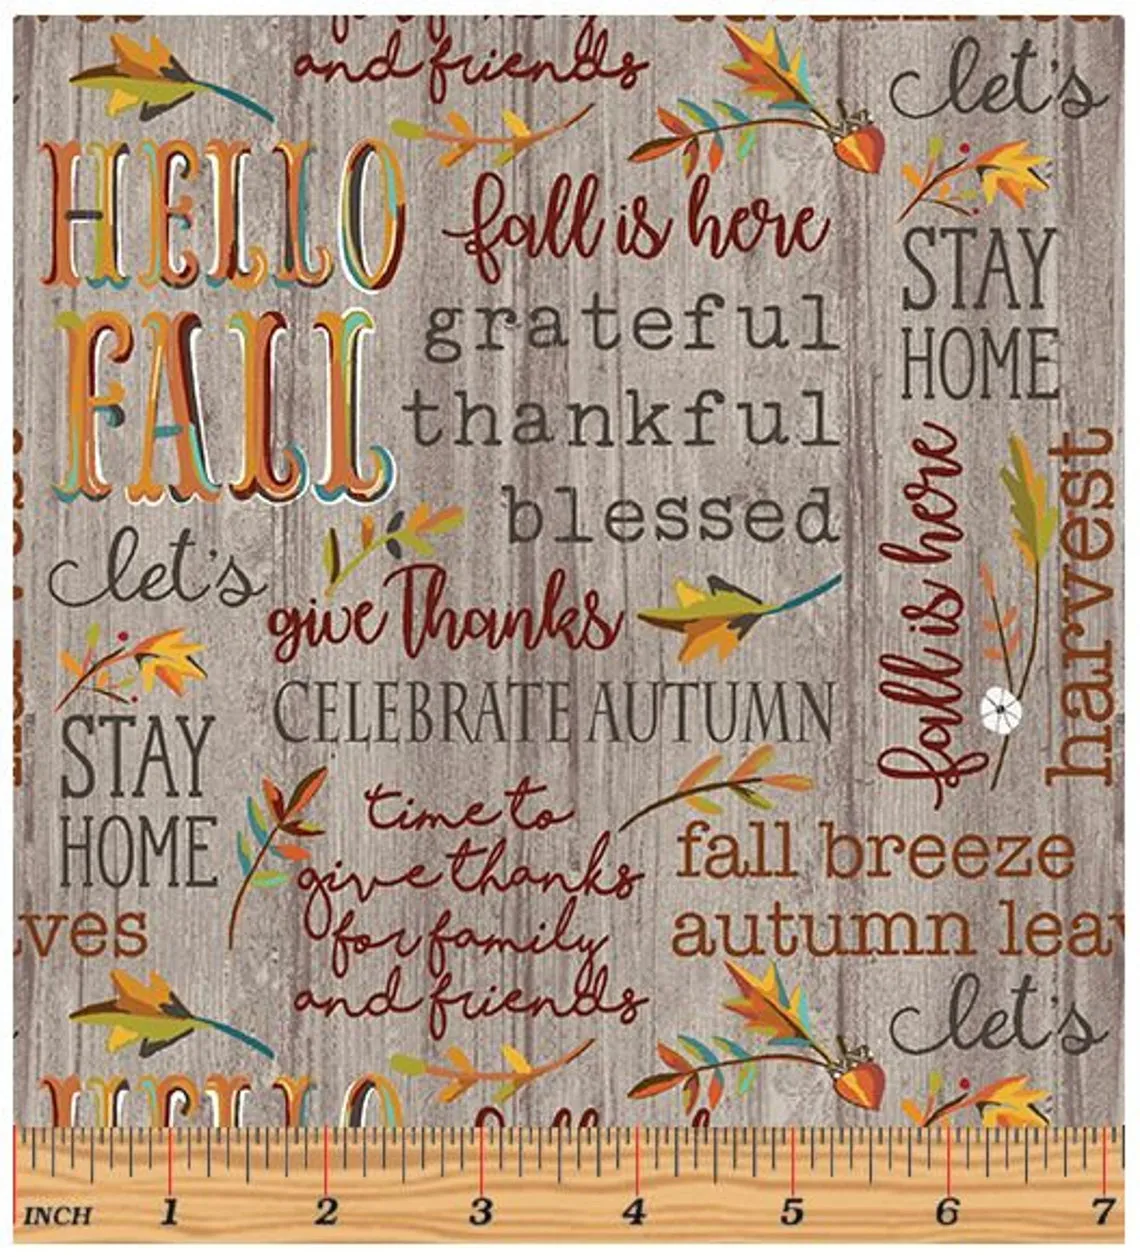 and friends
let's
HELLO
FALL
fall is here
grateful
thankful
blessed
STAY
HOME
fall is here
harvest
let's
give Thanks
CELEBRATE AUTUMN
STAY
HOME
time to
give thanks
for family
and friends
fall breeze
autumn leav
ves
let's
HELLO
INCH 1 2 3 4 5 6 7